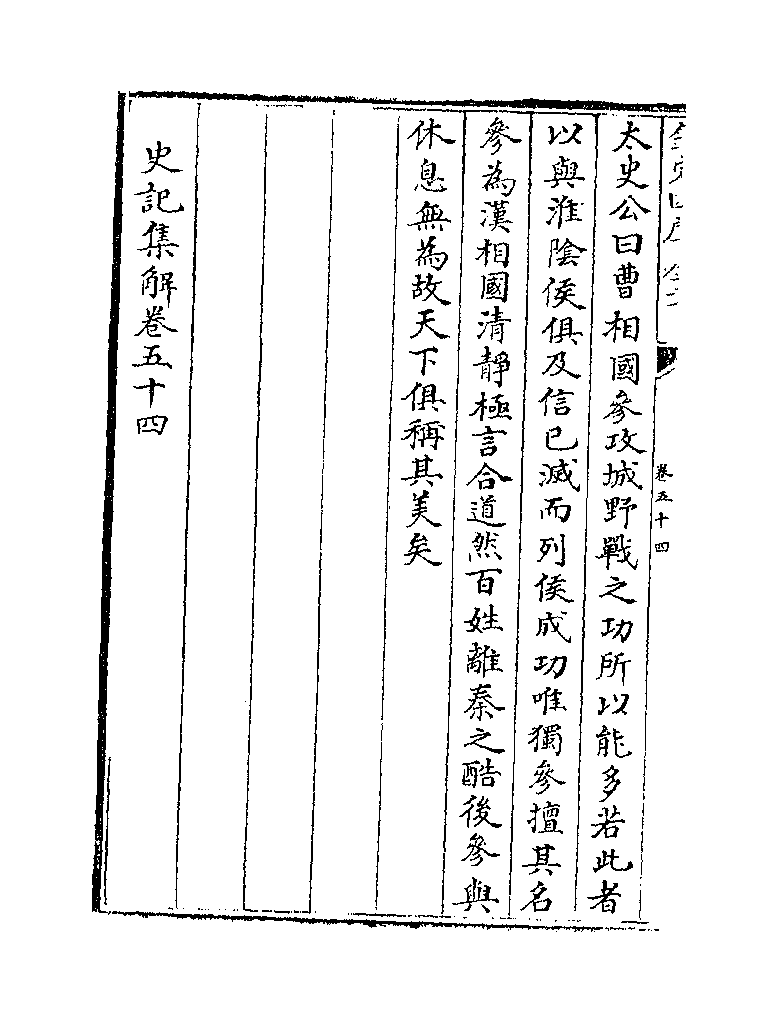 卷五十四
太史公曰曹相國參攻城野戰之功所以能多若此者
以與淮陰侯俱及信已滅而列侯成功唯獨參擅其名
參為漢相國清靜極言合道然百姓離秦之酷後參與
休息無為故天下俱稱其美矣
史記集解卷五十四